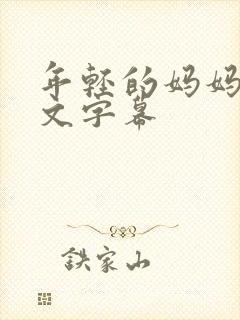 年轻的妈妈
文字幕
铁家山